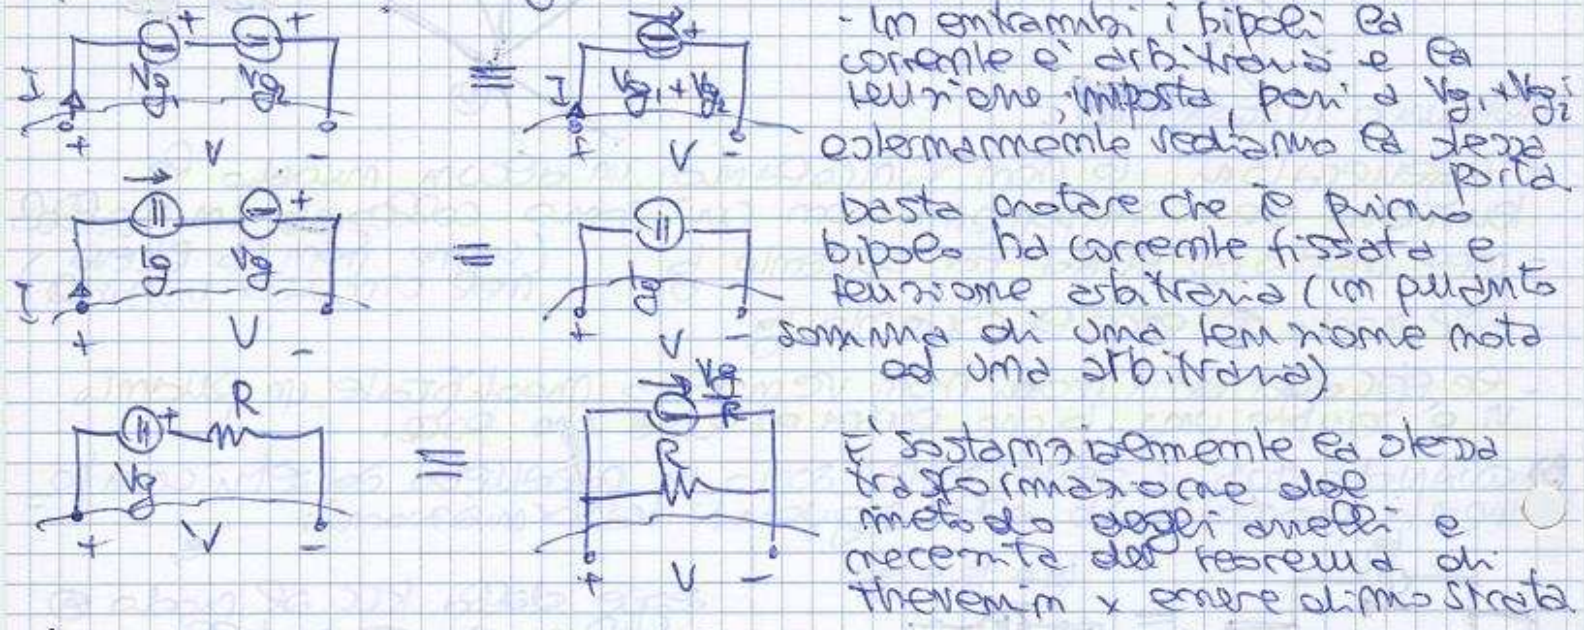 + + + - In entrambi i bipoli la
corrente e' arbitraria e la
I Vg1 Vg2 ≡ I Vg1 + Vg2 tensione, imposta, pari a Vg1 + Vg2;
+ V - + V - esternamente vediamo la stessa
porta
+ basta notare che il primo
Ig Vg ≡ Ig bipolo ha corrente fissata e
I tensione arbitraria (in quanto
+ V - + V - somma di una tensione nota
ed una arbitraria)
+ R Vg/R
Vg ≡ R E' sostanzialmente la stessa
trasformazione del
+ V - metodo degli anelli e
necessita del teorema di
+ V - thevenin x essere dimostrata